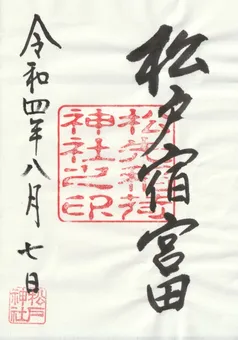 松戸宿宮田
松戸神社之印
令和四年八月七日
松戸神社